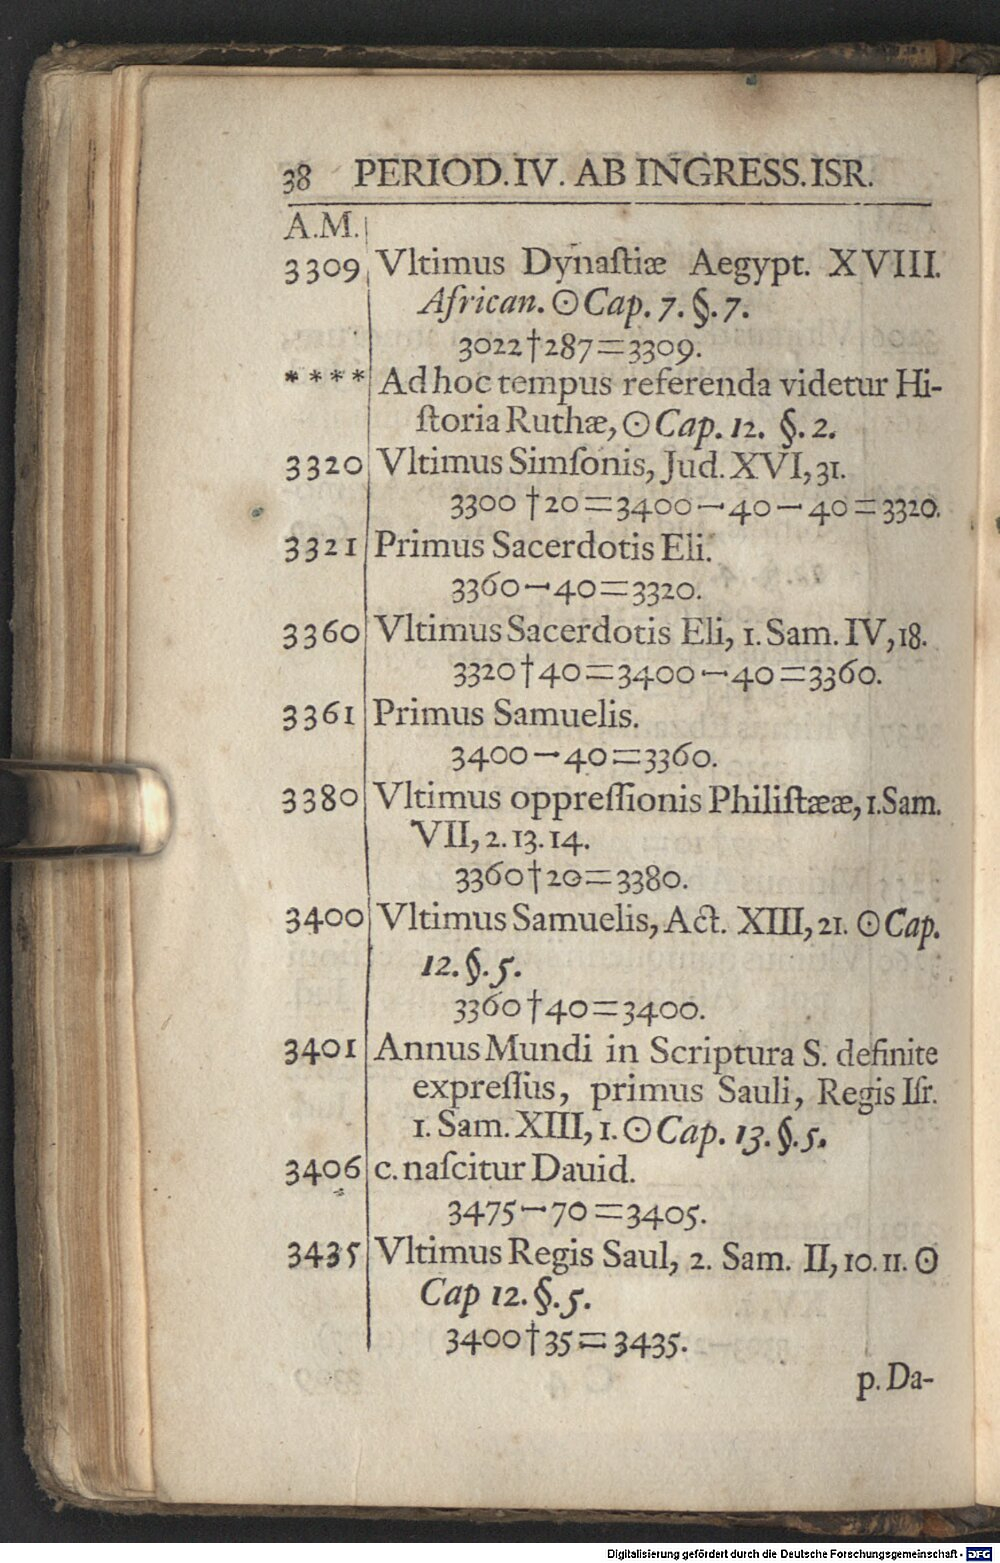 38 PERIOD. IV. AB INGRESS. ISR.
A.M.
3309 Vltimus Dynaſtiæ Aegypt. XVIII.
African. ☉ Cap. 7. §. 7.
3022†287=3309.
**** Ad hoc tempus referenda videtur Hi-
ſtoria Ruthæ, ☉ Cap. 12. §. 2.
3320 Vltimus Simſonis, Jud. XVI, 31.
3300 †20=3400—40—40=3320.
3321 Primus Sacerdotis Eli.
3360—40=3320.
3360 Vltimus Sacerdotis Eli, 1. Sam. IV, 18.
3320†40=3400—40=3360.
3361 Primus Samuelis.
3400—40=3360.
3380 Vltimus oppreſſionis Philiſtææ, 1. Sam.
VII, 2. 13. 14.
3360†20=3380.
3400 Vltimus Samuelis, Act. XIII, 21. ☉ Cap.
12. §. 5.
3360†40=3400.
3401 Annus Mundi in Scriptura S. definite
expreſſus, primus Sauli, Regis Iſr.
1. Sam. XIII, 1. ☉ Cap. 13. §. 5.
3406 c. naſcitur Dauid.
3475—70=3405.
3435 Vltimus Regis Saul, 2. Sam. II, 10. 11. ☉
Cap 12. §. 5.
3400†35=3435.
p. Da-
Digitalisierung gefördert durch die Deutsche Forschungsgemeinschaft - DFG